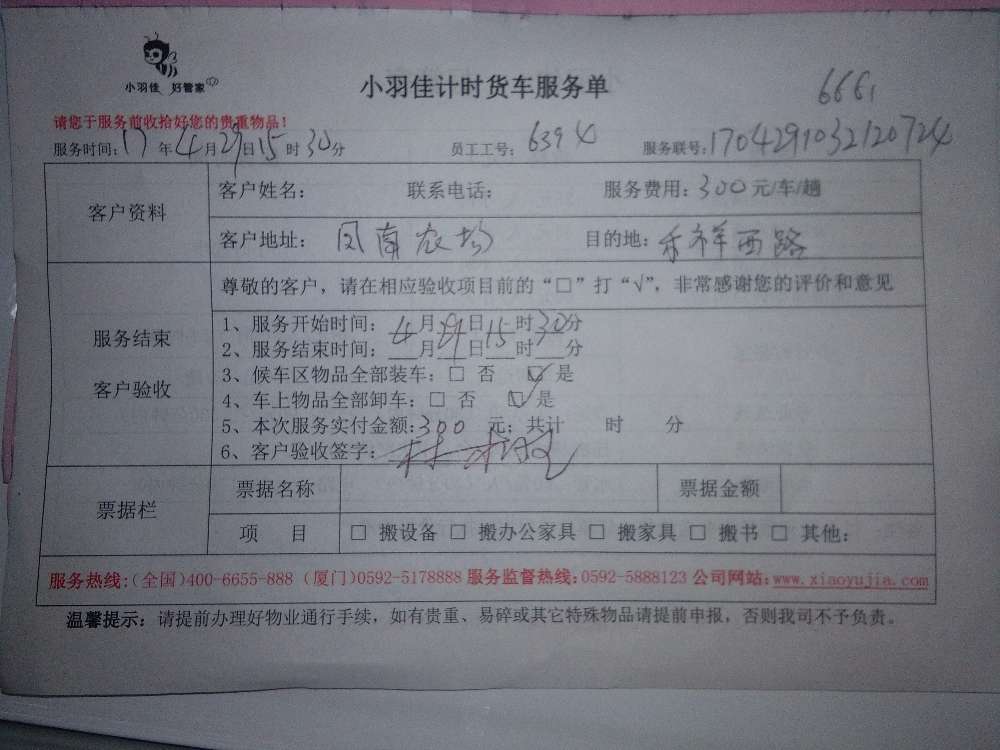 小羽佳 好管家
小羽佳计时货车服务单
6661
请您于服务前收拾好您的贵重物品!
服务时间:17年4月29日15时30分 员工工号:6394 服务联号:1704291032120724
客户资料
客户姓名: 联系电话: 服务费用:300元/车/趟
客户地址:凤南农场 目的地:禾祥西路
服务结束
客户验收
尊敬的客户,请在相应验收项目前的“□”打“√”,非常感谢您的评价和意见
1、服务开始时间:4月29日15时30分
2、服务结束时间:__月__日__时__分
3、候车区物品全部装车:□ 否 ☑ 是
4、车上物品全部卸车:□ 否 ☑ 是
5、本次服务实付金额:300 元;共计 时 分
6、客户验收签字:
票据栏
票据名称 票据金额
项 目 □ 搬设备 □ 搬办公家具 □ 搬家具 □ 搬书 □ 其他:
服务热线:(全国)400-6655-888 (厦门)0592-5178888 服务监督热线:0592-5888123 公司网站:www.xiaoyujia.com
温馨提示:请提前办理好物业通行手续,如有贵重、易碎或其它特殊物品请提前申报,否则我司不予负责。